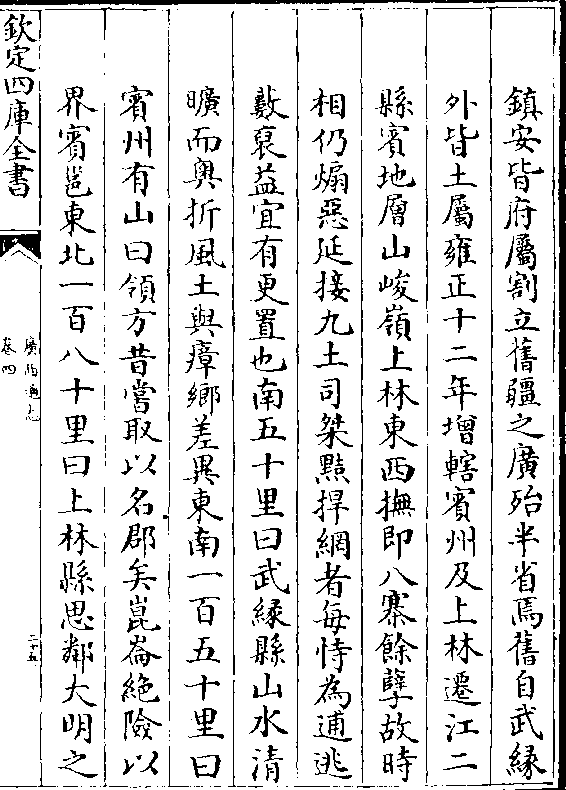 鎮安皆府屬割立舊疆之廣殆半省焉舊自武縁
外皆土屬雍正十二年增轄賓州及上林遷江二
縣賓地層山峻嶺上林東西撫即八寨餘孽故時
相仍煽惡延接九土司桀黠捍網者每恃為逋逃
藪裒益宜有更置也南五十里曰武縁縣山水清
曠而輿折風土與瘴鄉差異東南一百五十里曰
賓州有山曰領方昔嘗取以名郡矣崑崙絶險以
界賓邕東北一百八十里曰上林縣思鄰大明之
欽定四庫全書
廣西通志
卷四
二十五